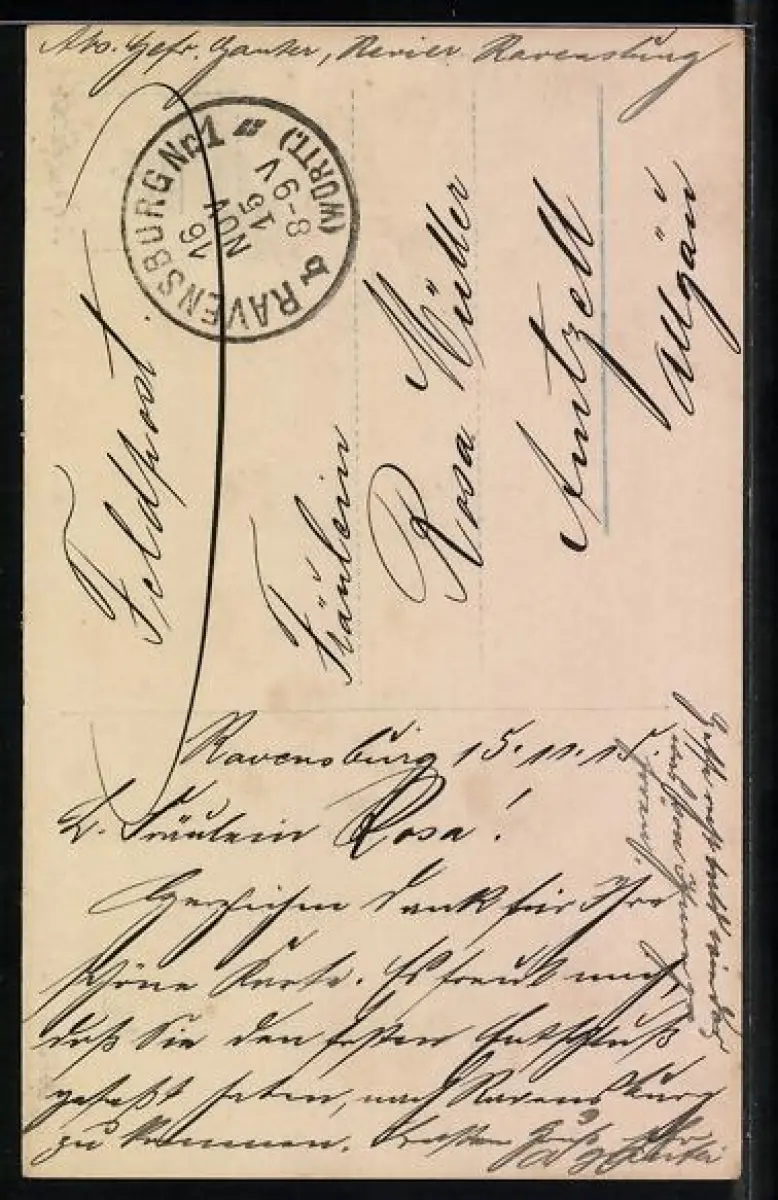 Abs. Gefr. Ganter, Revier Ravensburg
RAVENSBURG Nr 1 (WÜRTT.)
b
16 NOV 15
8-9 V
Feldpost.
Fräulein
Rosa Müller
Amtzell
Allgäu
Ravensburg 15.11.15.
L. Fräulein Rosa!
Herzlichen Dank für Ihre
schöne Karte. Es freut mich,
daß Sie den festen Entschluß
gefaßt haben, nach Ravensburg
zu kommen. Gruß